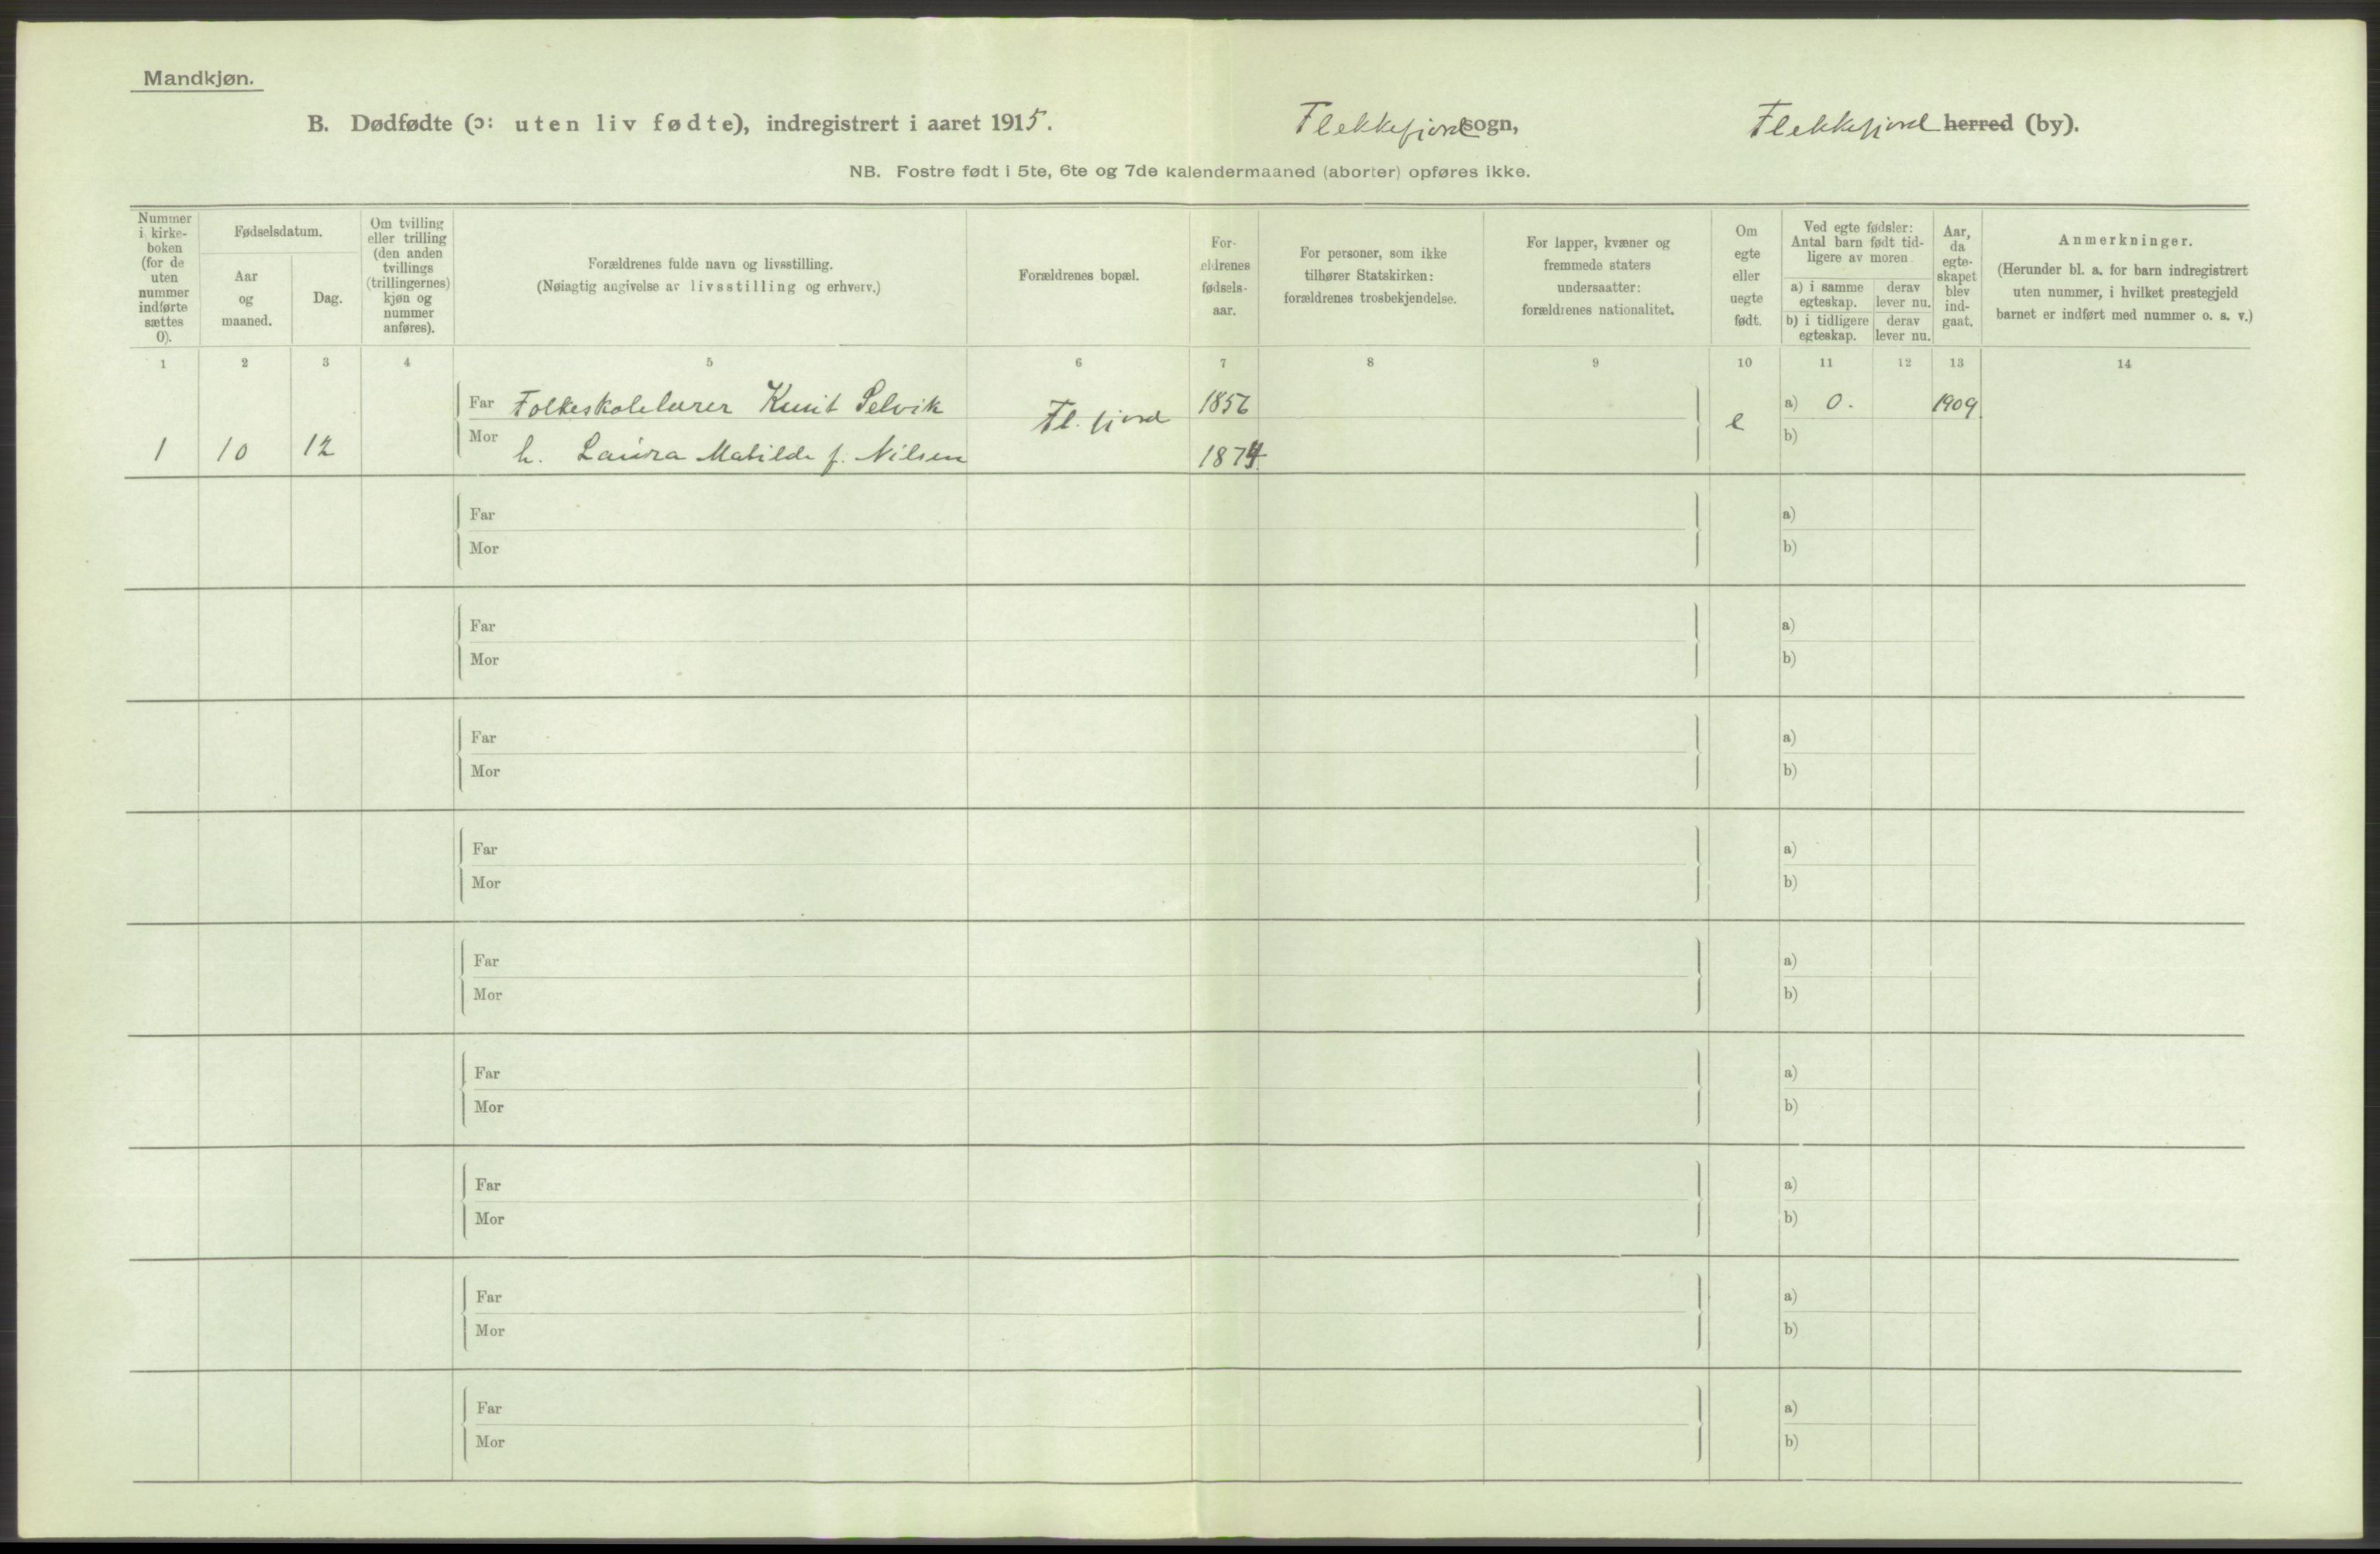 Mandkjøn.
B. Dødfødte (ɔ: uten liv fødte), indregistrert i aaret 1915. Flekkefjord sogn, Flekkefjord herred (by).
NB. Fostre født i 5te, 6te og 7de kalendermaaned (aborter) opføres ikke.
Nummer i kirke-boken (for de uten nummer indførte sættes 0).
Fødselsdatum.
Aar og maaned.
Dag.
Om tvilling eller trilling (den anden tvillings (trillingernes) kjøn og nummer anføres).
Forældrenes fulde navn og livsstilling.
(Nøiagtig angivelse av livsstilling og erhverv.)
Forældrenes bopæl.
For-eldrenes fødsels-aar.
For personer, som ikke tilhører Statskirken: forældrenes trosbekjendelse.
For lapper, kvæner og fremmede staters undersaatter: forældrenes nationalitet.
Om egte eller uegte født.
Ved egte fødsler: Antal barn født tid-ligere av moren
a) i samme egteskap.
derav lever nu.
b) i tidligere egteskap.
derav lever nu.
Aar, da egte-skapet blev ind-gaat.
Anmerkninger.
(Herunder bl. a. for barn indregistrert uten nummer, i hvilket prestegjeld barnet er indført med nummer o. s. v.)
1 2 3 4 5 6 7 8 9 10 11 12 13 14
Far Folkeskolelærer Knut Selvik Fl.fjord 1856 e a) 0. 1909
1 10 12 Mor h. Laura Matilde f. Nilsen 1874 b)
Far a)
Mor b)
Far a)
Mor b)
Far a)
Mor b)
Far a)
Mor b)
Far a)
Mor b)
Far a)
Mor b)
Far a)
Mor b)
Far a)
Mor b)
Far a)
Mor b)